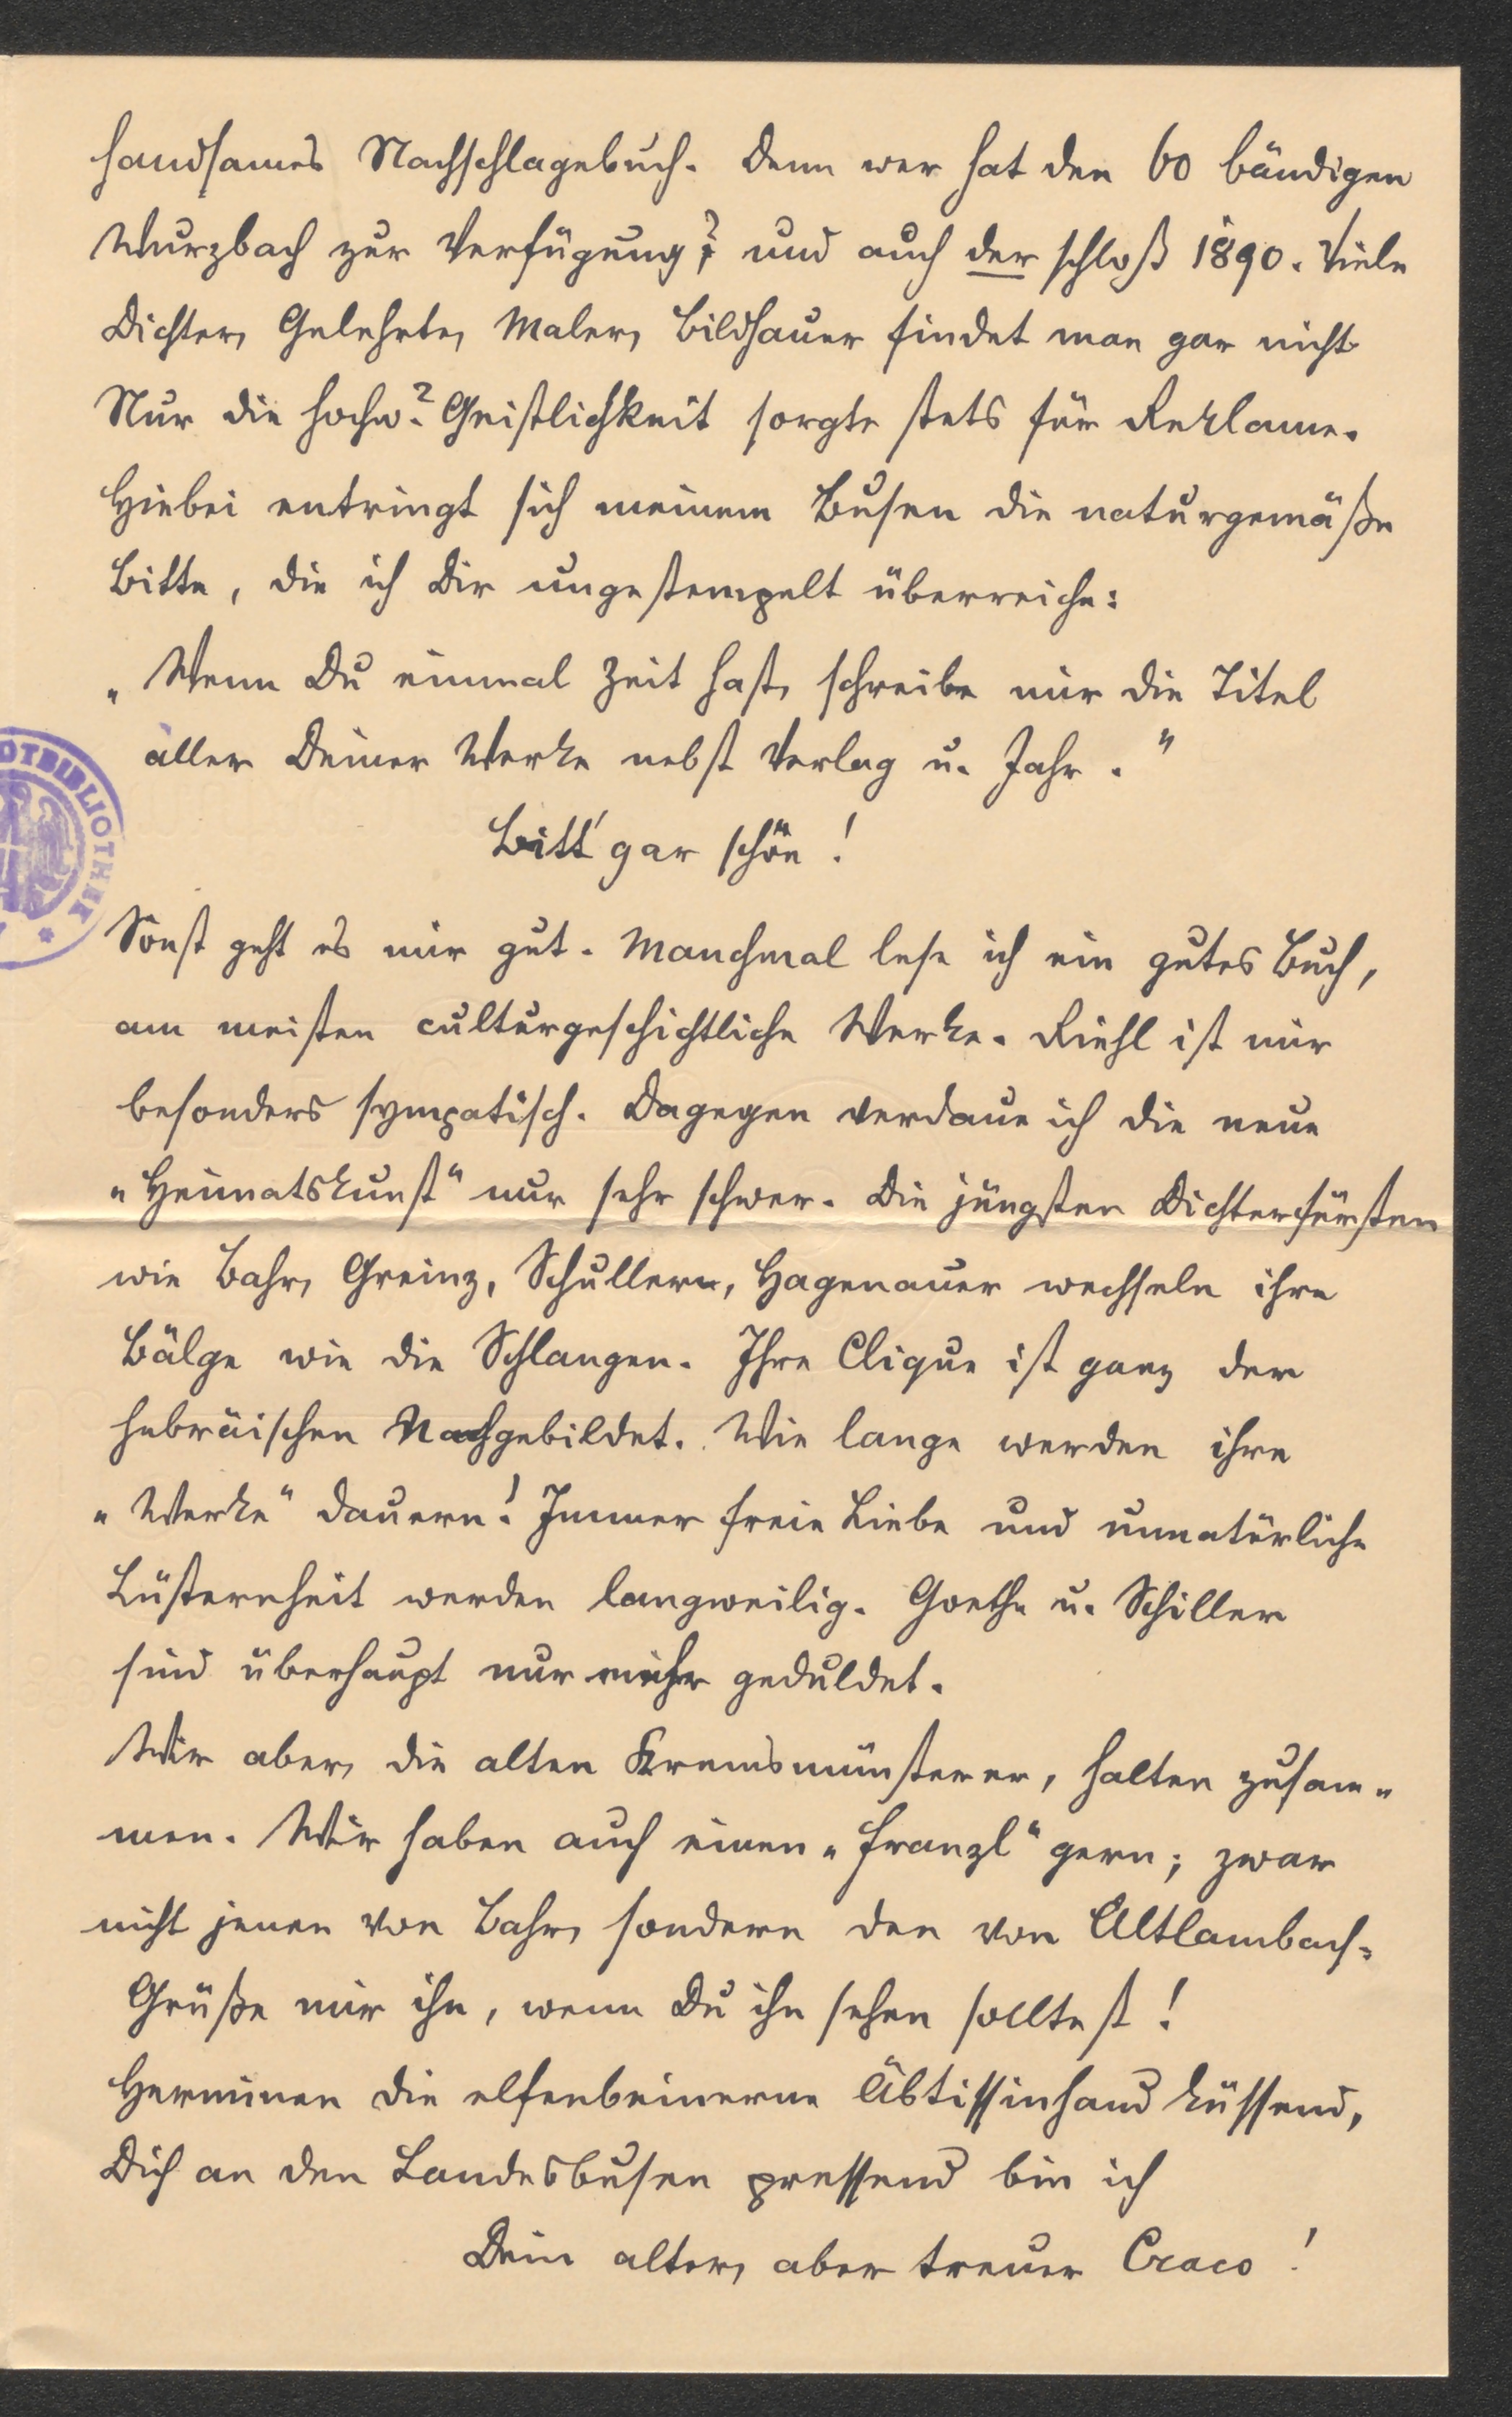 handsames Nachschlagebuch. Denn wer hat den 60 bändigen
Wurzbach zur Verfügung? und auch der schloß 1890. Viele
Dichter, Gelehrte, Maler, Bildhauer findet man gar nicht
Nur die hochw? Geistlichkeit sorgte stets für Reklame.
Hiebei entringt sich meinem Busen die naturgemäße
Bitte, die ich Dir ungestempelt überreiche:
„Wenn Du einmal Zeit hast, schreibe mir die Titel
aller Deiner Werke nebst Verlag u. Jahr."
Bitt' gar schön!
DTBIBLIOTHEK
Sonst geht es mir gut. Manchmal lese ich ein gutes Buch,
am meisten culturgeschichtliche Werke. Riehl ist mir
besonders sympatisch. Dagegen verdaue ich die neue
„Heimatskunst" nur sehr schwer. Die jüngsten Dichterfürsten
wie Bahr, Greinz, Schullern, Hagenauer wechseln ihre
Bälge wie die Schlangen. Ihre Clique ist ganz der
hebräischen Nachgebildet. Wie lange werden ihre
„Werke" dauern! Immer freie Liebe und unnatürliche
Lüsternheit werden langweilig. Goethe u. Schiller
sind überhaupt nur mehr geduldet.
Wir aber, die alten Kremsmünsterer, halten zusam„
men. Wir haben auch einen „Franzl" gern; zwar
nicht jenen von Bahr, sondern den von Altlambach.
Grüße mir ihn, wenn Du ihn sehen solltest!
Herminen die elfenbeinerne Äbtissinhand küssend,
Dich an den Landesbusen pressend bin ich
Dein alter, aber treuer Craco!